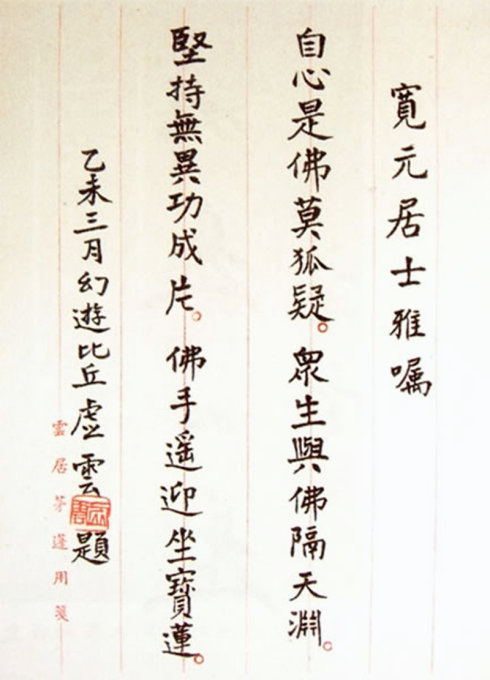 寬元居士雅囑
自心是佛莫狐疑。衆生與佛隔天淵。
堅持無異功成片。佛手遥迎坐寶蓮。
乙未三月幻遊比丘虛雲題
雲居茅蓬用箋